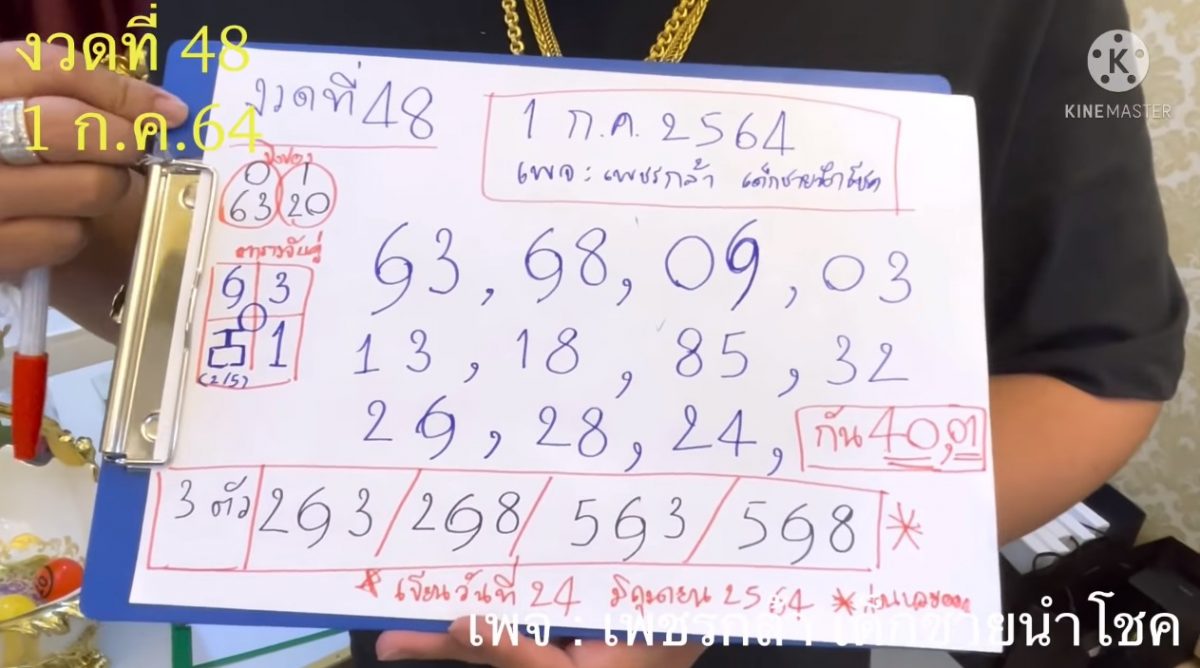 งวดที่ 48
1 ก.ค.64
KINEMASTER
งวดที่ 48
1 ก.ค. 2564
เพจ : เพชรกล้า เด็กชายนำโชค
ปิงปอง
0 1
63 20
ตารางจับคู่
6 3
1
(2/5)
63, 68, 06, 03
13, 18, 85, 32
26, 28, 24, กัน 40,01
3 ตัว 263 / 268 / 563 / 568 *
* เขียนวันที่ 24 มิถุนายน 2564 *
เพจ : เพชรกล้า เด็กชายนำโชค